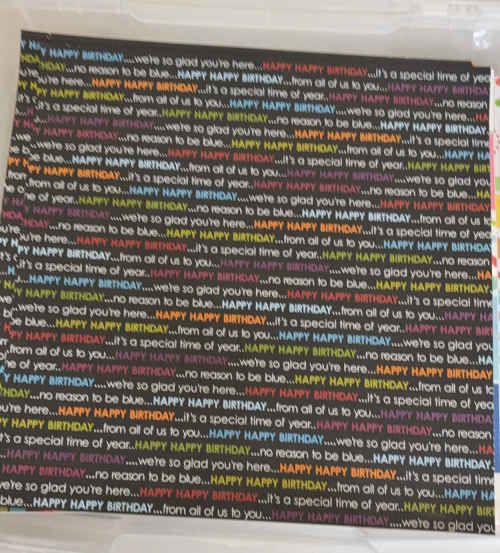 Y HAPPY BIRTHDAY....we're so glad you're here...HAPPY HAPPY BIRTHDAY...it's a special time of year
HDAY...no reason to be blue...HAPPY HAPPY BIRTHDAY...from all of us to you...HAPPY HAPPY BIRTHDA
u're here...HAPPY HAPPY BIRTHDAY...it's a special time of year..HAPPY HAPPY BIRTHDAY...no reason
Y HAPPY BIRTHDAY...from all of us to you...HAPPY HAPPY BIRTHDAY....we're so glad you're here...HA
it's a special time of year..HAPPY HAPPY BIRTHDAY...no reason to be blue...HAPPY HAPPY BIRTHDAY
HAPPY BIRTHDAY....we're so glad you're here...HAPPY HAPPY BIRTHDAY...it's a special time
Y HAPPY BIRTHDAY...no reason to be blue...HAPPY HAPPY BIRTHDAY...from all of us to you...HAPPY HA
we're so glad you're here...HAPPY HAPPY BIRTHDAY...it's a special time of year..HAPPY HAPPY BIRT
be blue...HAPPY HAPPY BIRTHDAY...from all of us to you...HAPPY HAPPY BIRTHDAY....we're so glad you
PY HAPPY BIRTHDAY...it's a special time of year..HAPPY HAPPY BIRTHDAY...no reason to be blue...HA
from all of us to you...HAPPY HAPPY BIRTHDAY....we're so glad you're here...HAPPY HAPPY BIRTHDAY
e of year..HAPPY HAPPY BIRTHDAY...no reason to be blue...HAPPY HAPPY BIRTHDAY...from all of us to
Y HAPPY BIRTHDAY....we're so glad you're here...HAPPY HAPPY BIRTHDAY...it's a special time of year
HDAY...no reason to be blue...HAPPY HAPPY BIRTHDAY...from all of us to you...HAPPY HAPPY BIRTHDA
u're here...HAPPY HAPPY BIRTHDAY...it's a special time of year..HAPPY HAPPY BIRTHDAY...no reason
PY HAPPY BIRTHDAY...from all of us to you...HAPPY HAPPY BIRTHDAY....we're so glad you're here...HA
it's a special time of year..HAPPY HAPPY BIRTHDAY...no reason to be blue...HAPPY HAPPY BIRTHDAY
HAPPY BIRTHDAY....we're so glad you're here...HAPPY HAPPY BIRTHDAY...it's a special time
Y HAPPY BIRTHDAY...no reason to be blue...HAPPY HAPPY BIRTHDAY...from all of us to you...HAPPY HA
we're so glad you're here...HAPPY HAPPY BIRTHDAY...it's a special time of year..HAPPY HAPPY BIRT
be blue...HAPPY HAPPY BIRTHDAY...from all of us to you...HAPPY HAPPY BIRTHDAY....we're so glad you
PY HAPPY BIRTHDAY...it's a special time of year..HAPPY HAPPY BIRTHDAY...no reason to be blue...HA
from all of us to you...HAPPY HAPPY BIRTHDAY....we're so glad you're here...HAPPY HAPPY BIRTHDAY
e of year..HAPPY HAPPY BIRTHDAY...no reason to be blue...HAPPY HAPPY BIRTHDAY...from all of us to
Y HAPPY BIRTHDAY....we're so glad you're here...HAPPY HAPPY BIRTHDAY...it's a special time of year
HDAY...no reason to be blue...HAPPY HAPPY BIRTHDAY...from all of us to you...HAPPY HAPPY BIRTHDAY
u're here...HAPPY HAPPY BIRTHDAY...it's a special time of year..HAPPY HAPPY BIRTHDAY...no reason
Y HAPPY BIRTHDAY...from all of us to you...HAPPY HAPPY BIRTHDAY....we're so glad you're here...HA
t's a special time of year..HAPPY HAPPY BIRTHDAY...no reason to be blue...HAPPY HAPPY BIRTHDAY
HAPPY HAPPY BIRTHDAY....we're so glad you're here...HAPPY HAPPY BIRTHDAY...it's a special time
HAPPY BIRTHDAY...no reason to be blue...HAPPY HAPPY BIRTHDAY...from all of us to you...HAPPY HA
we're so glad you're here...HAPPY HAPPY BIRTHDAY...it's a special time of year..HAPPY HAPPY BIRT
blue...HAPPY HAPPY BIRTHDAY...from all of us to you...HAPPY HAPPY BIRTHDAY....we're so glad you